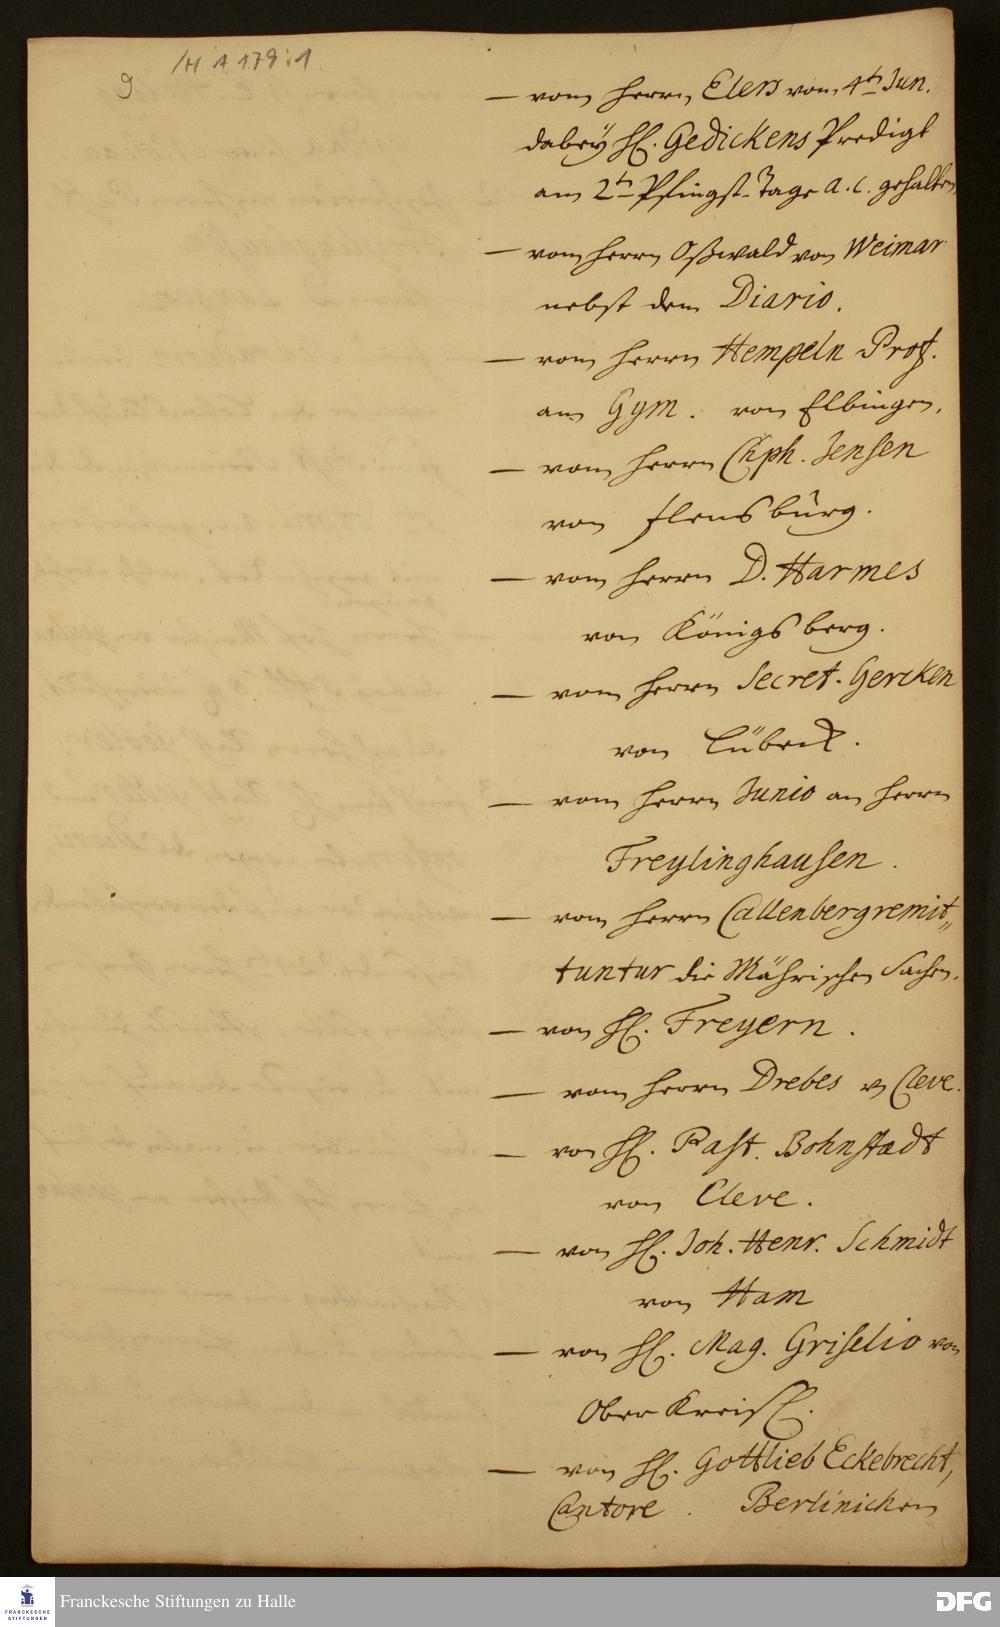 /H A 179:1
9
— vom Herrn Elers vom 4th Jun.
dabey H. Gedickens Predigt
am 2th Pfingst-Tage a. c. gehalten
— vom Herrn Oßwald von Weimar
nebst dem Diario.
— vom Herrn Hempeln Prof.
am Gym. von Elbingen.
— vom Herrn Chph. Jensen
von Flensburg.
— vom Herrn D. Harmes
von Königsberg.
— vom Herrn Secret. Gercken
von Lübeck.
— vom Herrn Junio an Herrn
Freylinghausen.
— vom Herrn Callenberg remit„
tuntur die Mährischen Sachen.
— von H. Freyern.
— vom Herrn Drebes v Cleve.
— von H. Past. Bohnstædt
von Cleve.
— von H. Joh. Henr. Schmidt
von Ham
— von H. Mag. Griselio von
Ober
— von H. Gottlieb Eckebrecht,
Cantore. Berlinichen
Franckesche Stiftungen zu Halle
FRANCKESCHE
STIFTUNGEN
DFG